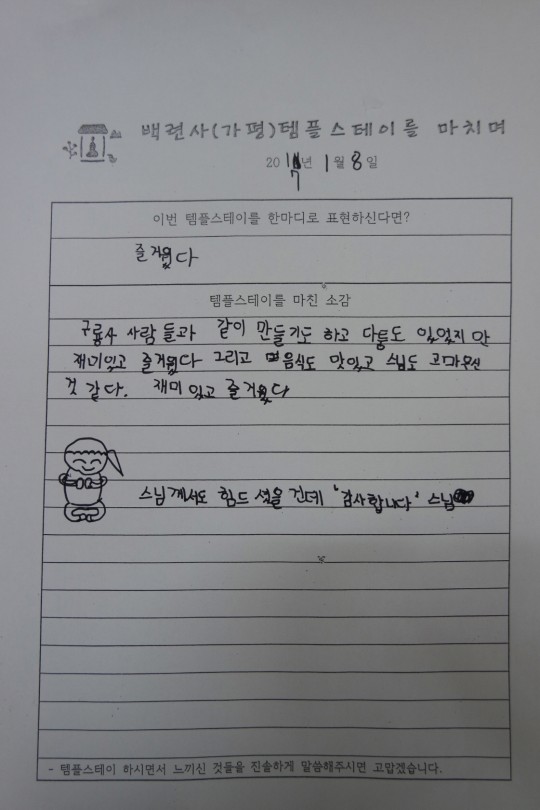 백련사(가평)템플스테이를 마치며
2017년 1월 8일
이번 템플스테이를 한마디로 표현하신다면?
즐거웠다
템플스테이를 마친 소감
구룡사 사람들과 같이 만들기도 하고 다툼도 있었지만
재미있고 즐거웠다 그리고 음식도 맛있고 스님도 고마우신
것 같다. 재미있고 즐거웠다
스님께서도 힘드셨을 건데 '감사합니다' 스님
- 템플스테이 하시면서 느끼신 것들을 진솔하게 말씀해주시면 고맙겠습니다.